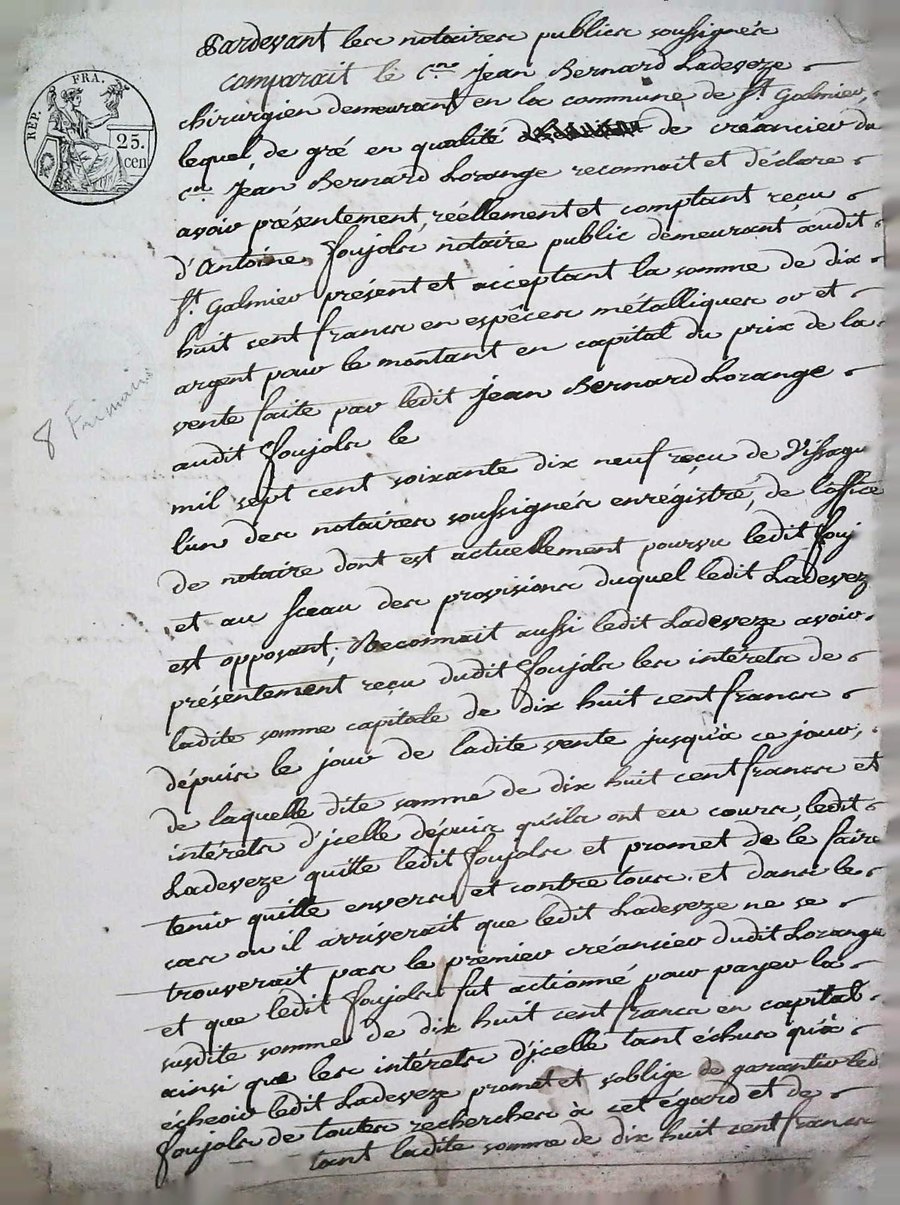 REP. FRA.
25.
cen
8 Frimaire
Pardevant les notaires publics soussignés
comparait le c.en Jean Bernard Ladeveze
chirurgien demeurant en la commune de St. Galmier,
lequel, de gré en qualité de créancier du
c.en Jean Bernard Lorange reconnoit et déclare
avoir présentement, réellement et comptant reçu
d'Antoine Foujols notaire public demeurant audit
St. Galmier présent et acceptant la somme de dix
huit cent francs en espèces métalliques or et
argent pour le montant en capital du prix de la
vente faite par ledit Jean Bernard Lorange
audit Foujols le
mil sept cent soixante dix neuf reçu de
l'un des notaires soussignés enrégistré, de l'office
de notaire dont est actuellement pourvu ledit Fouj
et au sceau des provisions duquel ledit Ladevez
est opposant; Reconnait aussi ledit Ladeveze avoir
présentement reçu dudit Foujols les intérets de
ladite somme capitale de dix huit cent francs
dépuis le jour de ladite vente jusqu'à ce jour,
de laquelle dite somme de dix huit cent francs et
intérets d'jcelle dépuis qu'ils ont eu cours, ledit
Ladeveze quitte ledit Foujols et promet de le faire
tenir quitte envers et contre tous. et dans le
cas ou il arriverait que ledit Ladeveze ne se
trouverait pas le premier créancier dudit Lorange
et que ledit Foujols fut actionné pour payer la
susdite somme de dix huit cent francs en capital
ainsi que les intérets d'jcelle tant échus qu'à
écheoir ledit Ladeveze promet et s'oblige de garantir led
Foujols de toutes recherches à cet égard et de
tant ladite somme de dix huit cent francs